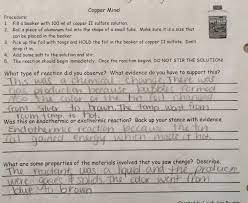 Copper Mine!
Procedure:
1. Fill a beaker with 100 ml of copper II sulfate solution.
2. Roll a piece of aluminum foil into the shape of a small tube. Make sure it is a size that
can be placed in the beaker.
3. Pick up the foil with tongs and HOLD the foil in the beaker of copper II sulfate. Don't
drop it in.
4. Add some salt to the solution and stir.
5. The reaction should begin immediately. Once the reaction begins, DO NOT STIR THE SOLUTION!
What type of reaction did you observe? What evidence do you have to support this?
This was a chemical change. There was
gas production because bubbles formed
the color of the tin foil changed
from silver to brown. The temp went from
room temp. to hot.
Was this an endothermic or exothermic reaction? Back up your stance with evidence.
Endothermic reaction because the tin
foil gained energy which made it hot.
What are some properties of the materials involved that you saw change? Describe.
The reactant was a liquid and the products
were gases & solids. The color went from
blue to brown